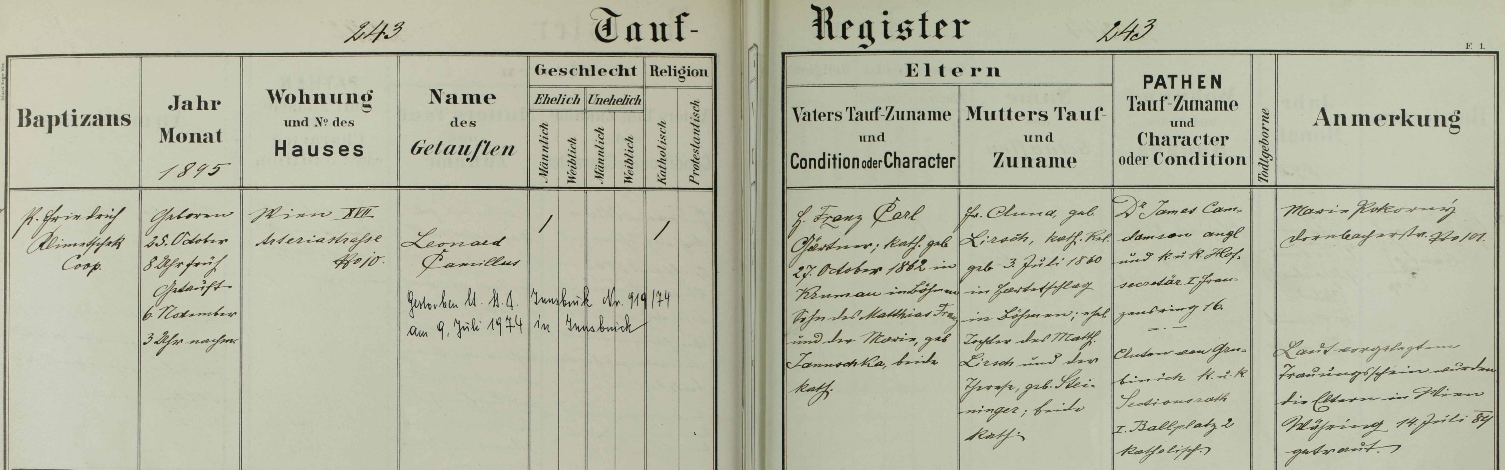 243
Tauf-
Register
243
F. 1.
Baptizans
Jahr
Monat
1895
Wohnung
und No des
Hauses
Name
des
Getauften
Geschlecht
Ehelich
Unehelich
Männlich
Weiblich
Männlich
Weiblich
Religion
Katholisch
Protestantisch
Eltern
Vaters Tauf-Zuname
und
Condition oder Character
Mutters Tauf-
und
Zuname
PATHEN
Tauf-Zuname
und
Character
oder Condition
Todtgeborne
Anmerkung
P. Friedrich
Klimetschek
Coop.
Geboren
25. October
8 Uhr früh
Getauft
6 November
3 Uhr nachm.
Wien XVII
No 10.
Leonard
Camillus
Gestorben lt. St. A. Innsbruck Nr. 919/74
am 9. Juli 1974 in Innsbruck
/
/
H. Franz Carl
Gärtner; kath. geb
27. October 1862 in
Krumau in Böhmen
Sohn des Matthias Franz
und der Marie, geb
Jannschka, beide
kath.
Fr. Anna, geb
Lirsch, kath. Rel.
geb. 3. Juli 1860
in
in Böhmen; ehel
Tochter des Math.
Lirsch und der
Therese, geb. Stei-
ninger; beide
kath.
Dr James Cam-
und k. u. k Hof-
secretär I Fran-
zensring 16.
Anton von
k. u. k
Sectionsrath
I. Ballplatz 2
katholisch
Marie Pokorný
Dornbacherstr. No 101.
Laut vorgelegtem
Trauungsschein wurden
die Eltern in Wien
Währing 14. Juli 84
getraut.